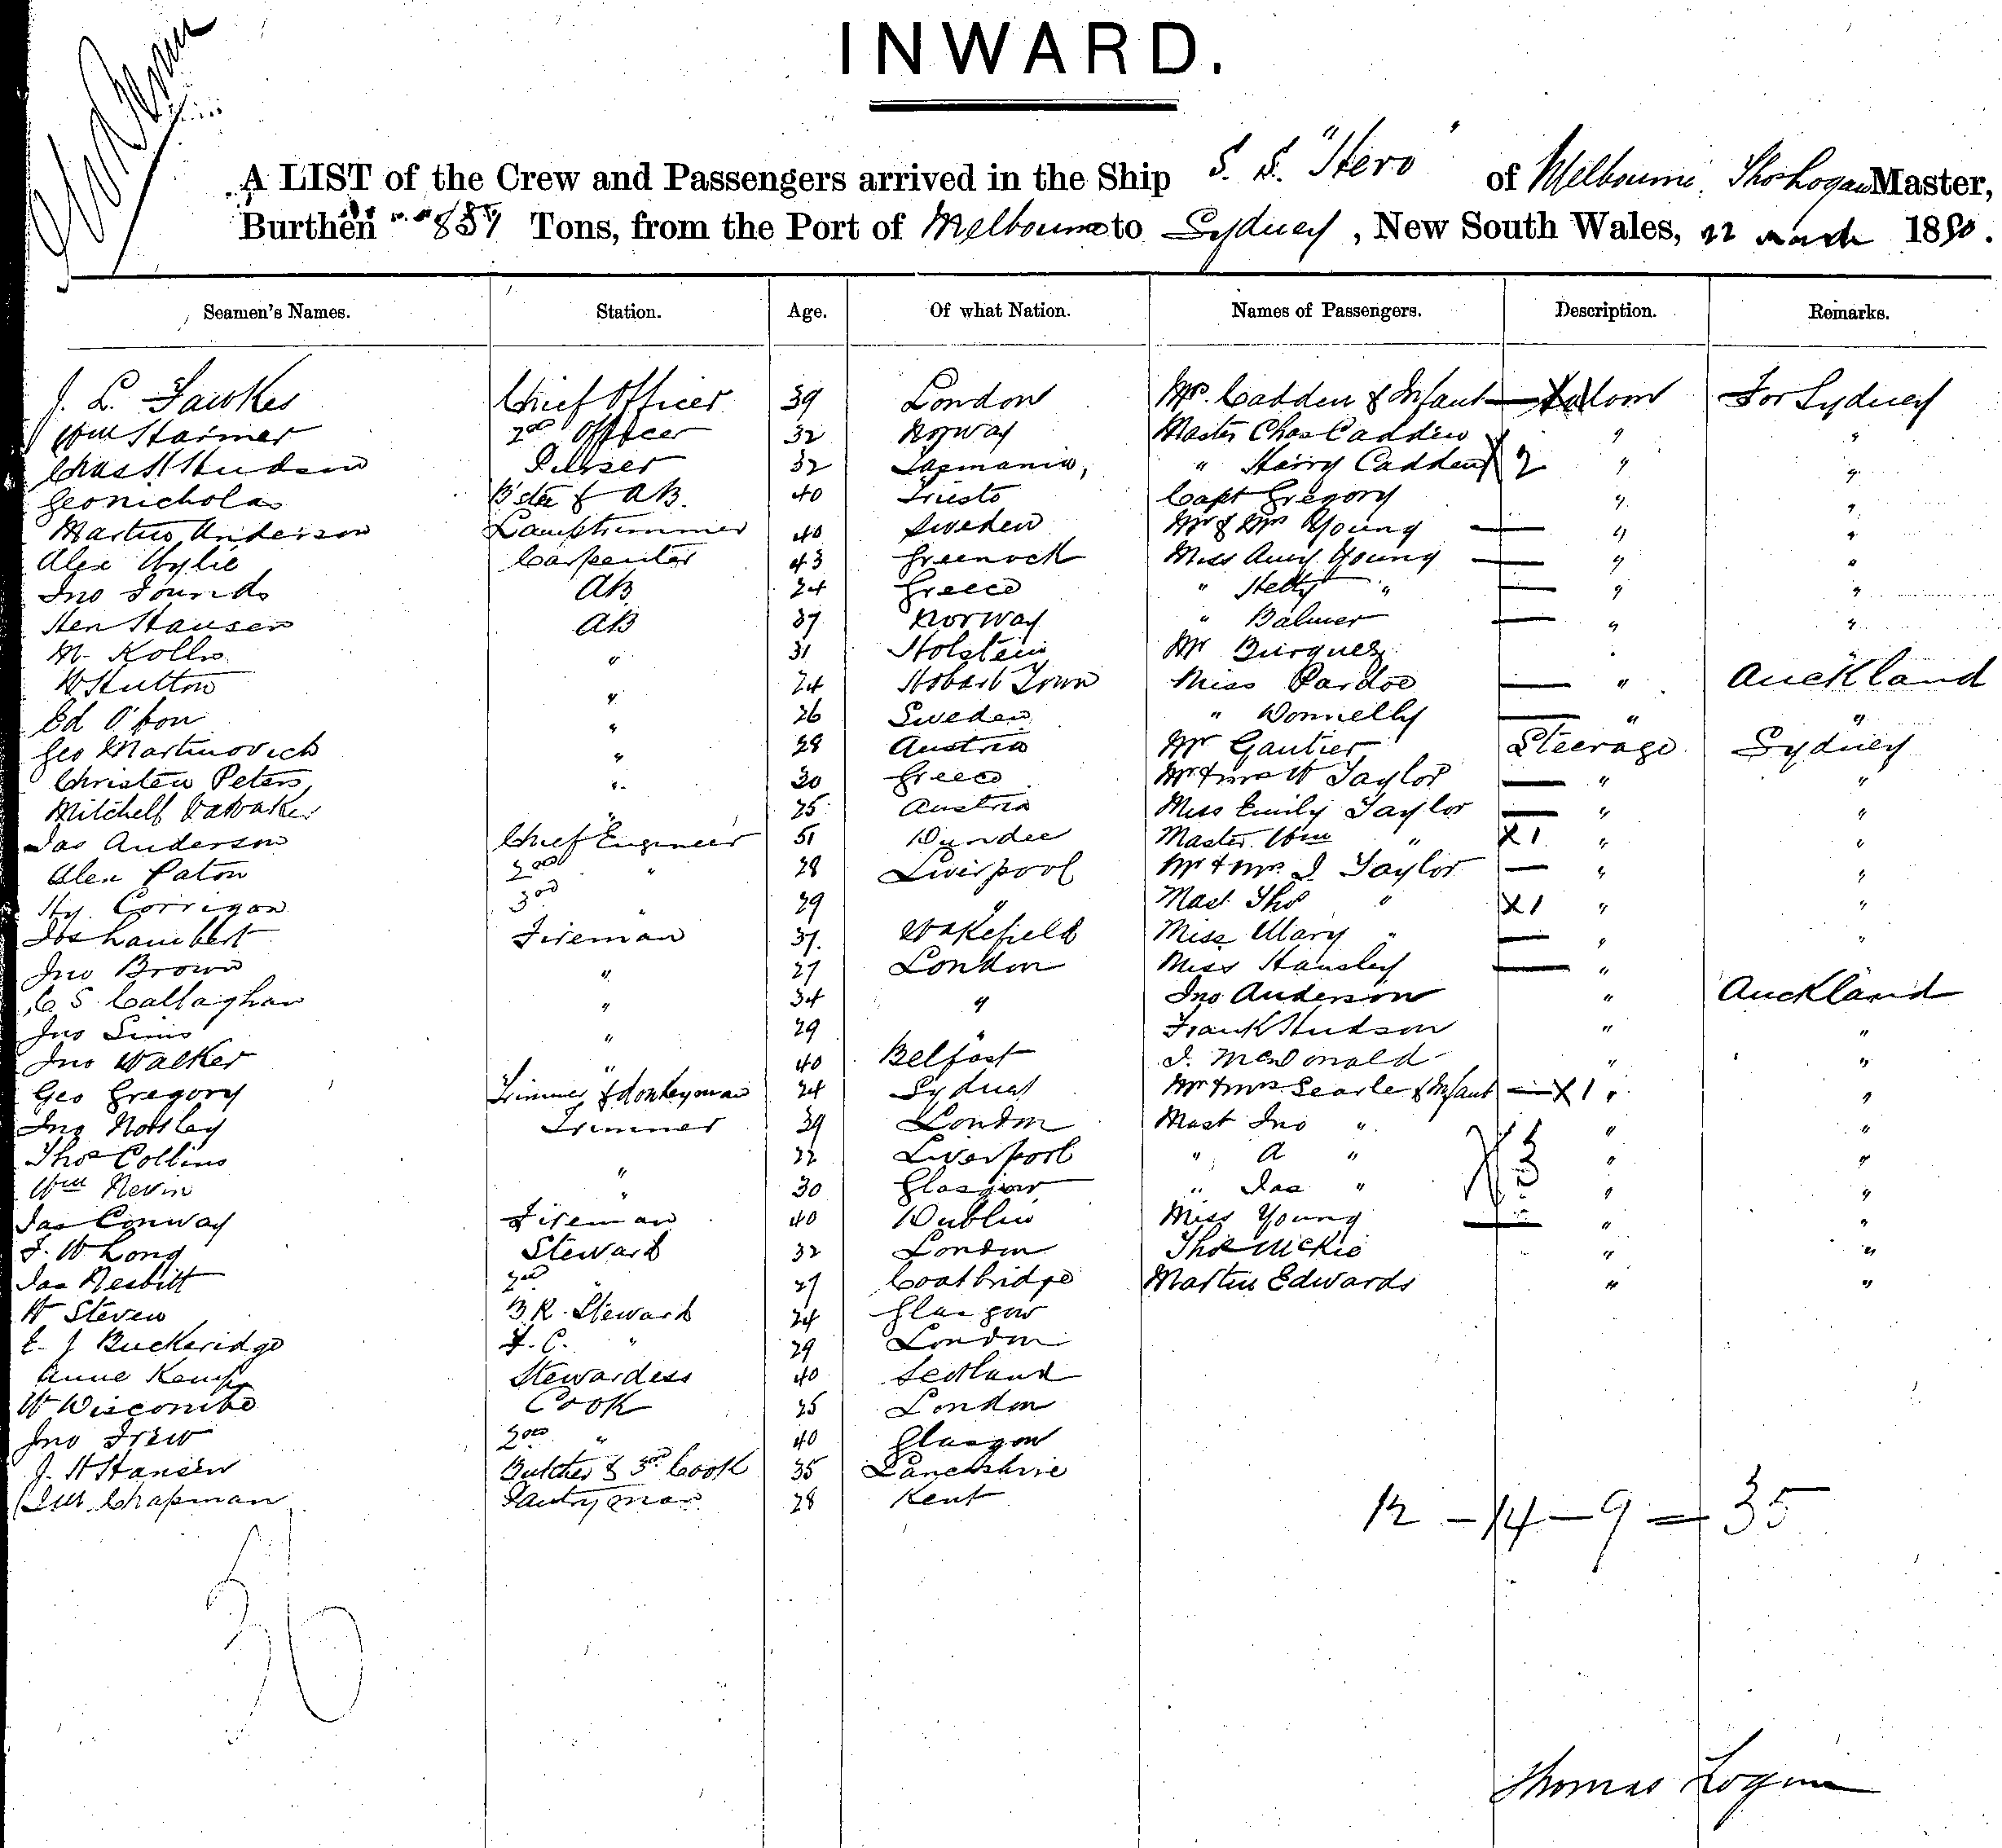 INWARD.
A LIST of the Crew and Passengers arrived in the Ship S. S. "Hero" of Melbourne, Thos Logan Master,
Burthen Tons, from the Port of Melbourne to Sydney, New South Wales, 22 March 1880.
Seamen's Names. Station. Age. Of what Nation. Names of Passengers. Description. Remarks.
J. L. Fawkes Chief Officer 39 London Mrs. Cadden & Infant — Saloon For Sydney
Wm Starmer 2nd Officer 32 Norway Master Chas Cadden " "
Chas H Hudson Purser 32 Tasmania, " Harry Cadden X 2 " "
Geo Nicholas B'sn & AB. 40 Trieste Capt Gregory " "
Martin Anderson Lamptrimmer 40 Sweden Mr & Mrs Young — " "
Alex Wylie Carpenter 43 Greenock Miss Amy Young — " "
Jno AB 24 Greece " Hetty " — " "
Hen Hansen AB 37 Norway " Balmer — " "
M. Kolln " 31 Holstein Mr Burquez " "
W Hutton " 24 Hobart Town Miss Pardoe — " Auckland
Ed " 26 Sweden " Donnelly — " "
Geo Martinovich " 28 Austria Mr Gautier Steerage Sydney
Christen Peters " 30 Greece Mr & Mrs W Taylor — " "
Mitchell " 25 Austria Miss Emily Taylor — " "
Jas Anderson Chief Engineer 51 Dundee Master Wm " X 1 " "
Alex Paton 2nd " 28 Liverpool Mr & Mrs J. Taylor — " "
Hy. Corrigan 3rd " 29 " Mast Thos " X 1 " "
Jos Lambert Fireman 37. Wakefield Miss Mary " — " "
Jno Brown " 27 London Miss Hansley — " "
C S. Callaghan " 34 " Jno Anderson " Auckland
Jno Sims " 29 " Frank Hudson " "
Jno Walker " 40 Belfast J. McDonald " "
Geo Gregory Trimmer & Donkeyman 24 Sydney Mr & Mrs Searle & Infant — X 1 " "
Jno Notsley Trimmer 39 London Mast Jno " " "
Thos Collins " 22 Liverpool " A " X 3 " "
Wm Nevin " 30 Glasgow " Jas " " "
Jas Conway Fireman 40 Dublin Miss Young — " "
F. W Long Steward 32 London Thos McKie " "
Jas Nesbitt 2nd " 27 Coatbridge Martin Edwards " "
W Steven B. R. Steward 24 Glasgow
E. J Buckeridge F. C. " 29 London
Anne Kemp Stewardess 40 Scotland
W Wiscombe Cook 25 London
Jno Frew 2nd " 40 Glasgow
J. H Hansen Butcher & 3rd Cook 35 Lancashire
Chapman Pantryman 28 Kent
12 — 14 — 9 = 35
36
Thomas Logan